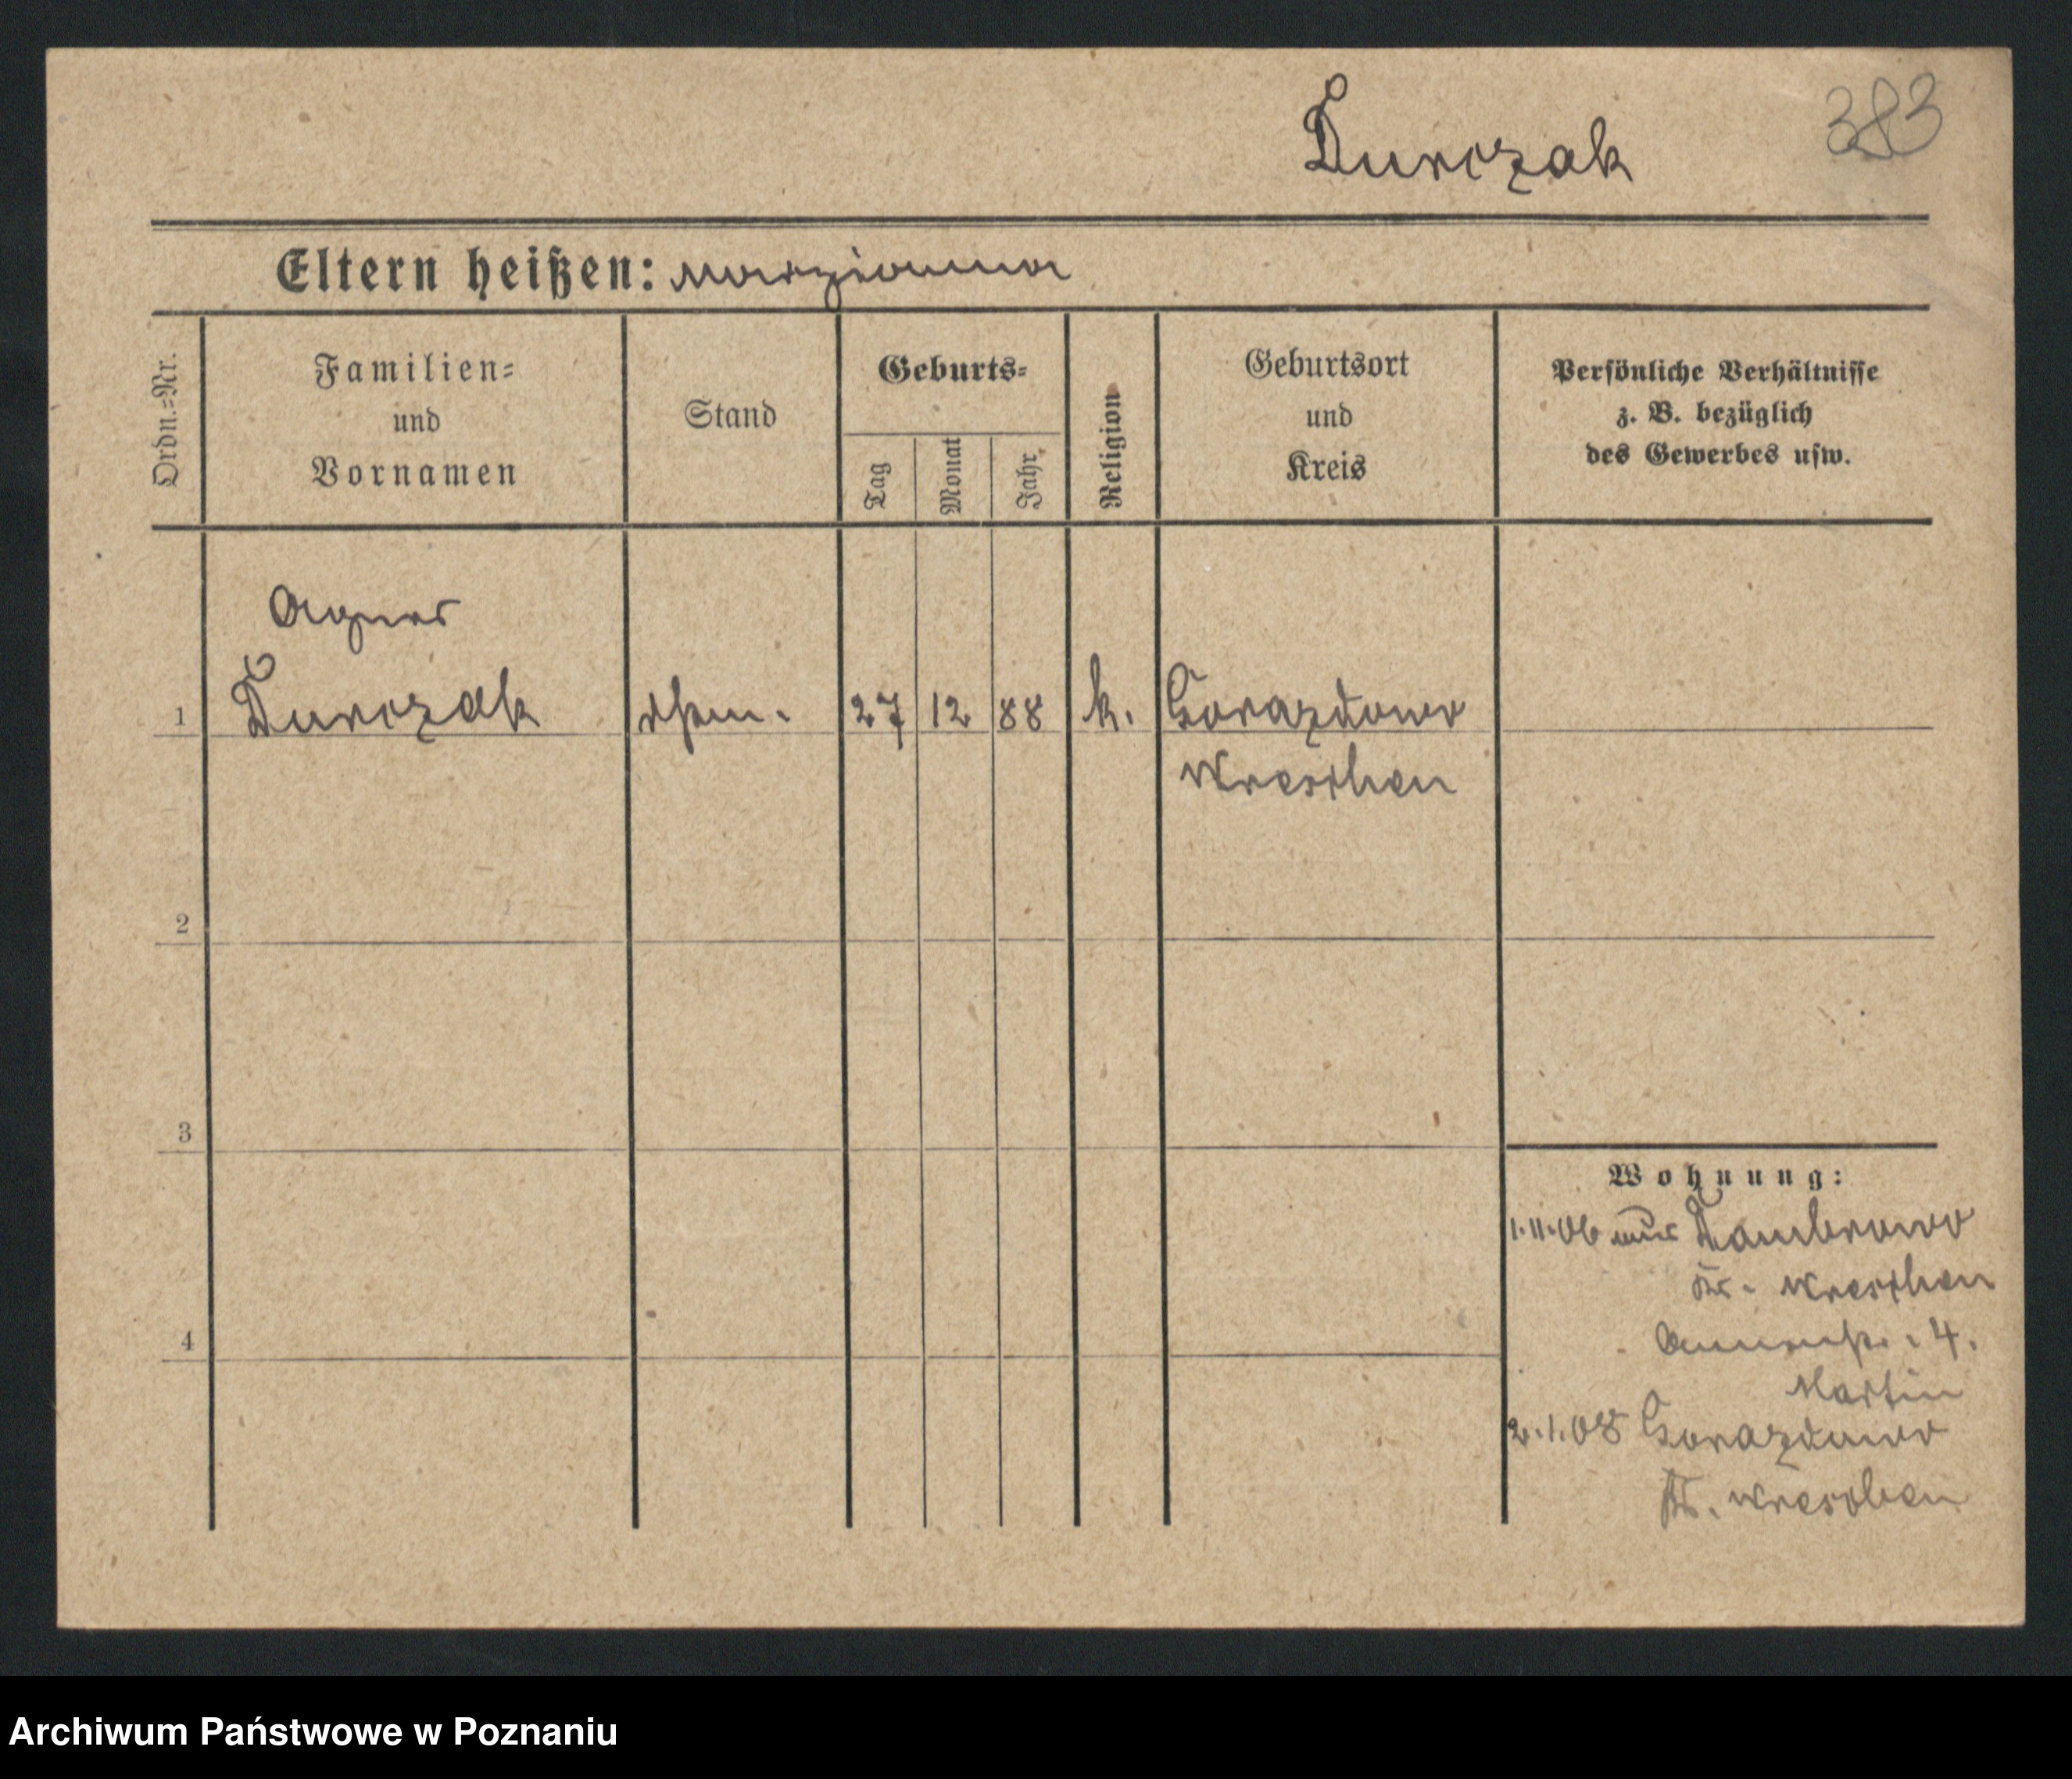 Durczak
383
Eltern heißen: Marzianna
Ordn.=Nr.
Familien=
und
Vornamen
Stand
Geburts=
Tag
Monat
Jahr
Religion
Geburtsort
und
Kreis
Persönliche Verhältnisse
z. B. bezüglich
des Gewerbes usw.
Agnes
1 Durczak 27 12 88 k. Gorazdowo
Wreschen
2
3
4
Wohnung:
1.11.06 aus Dambrowo
Kr. Wreschen
4.
Martin
2.1.08 Gorazdowo
Kr. Wreschen
Archiwum Państwowe w Poznaniu